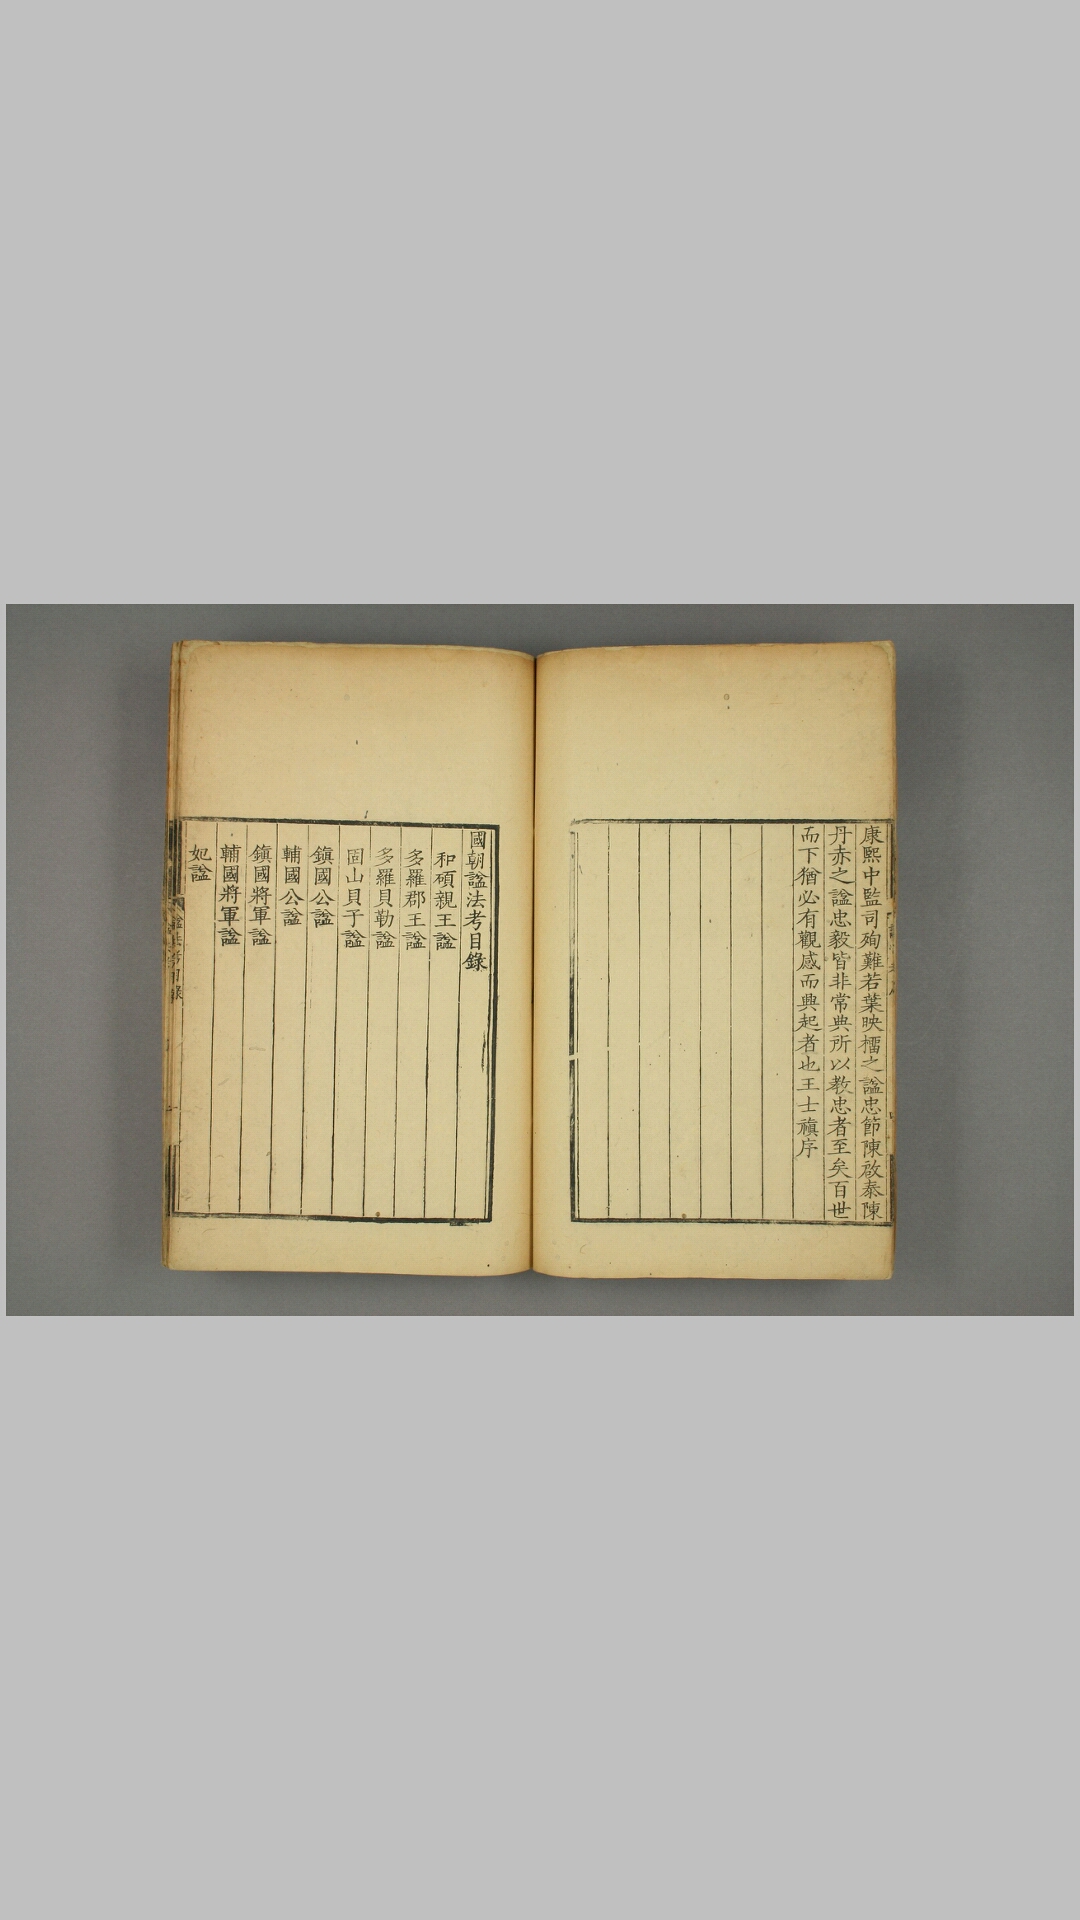 康熙中監司殉難若葉映橊之諡忠節陳啟泰陳
丹赤之諡忠毅皆非常典所以教忠者至矣百世
而下猶必有觀感而興起者也王士禛序
國朝諡法考目錄
和碩親王諡
多羅郡王諡
多羅貝勒諡
固山貝子諡
鎮國公諡
輔國公諡
鎮國將軍諡
輔國將軍諡
妃諡